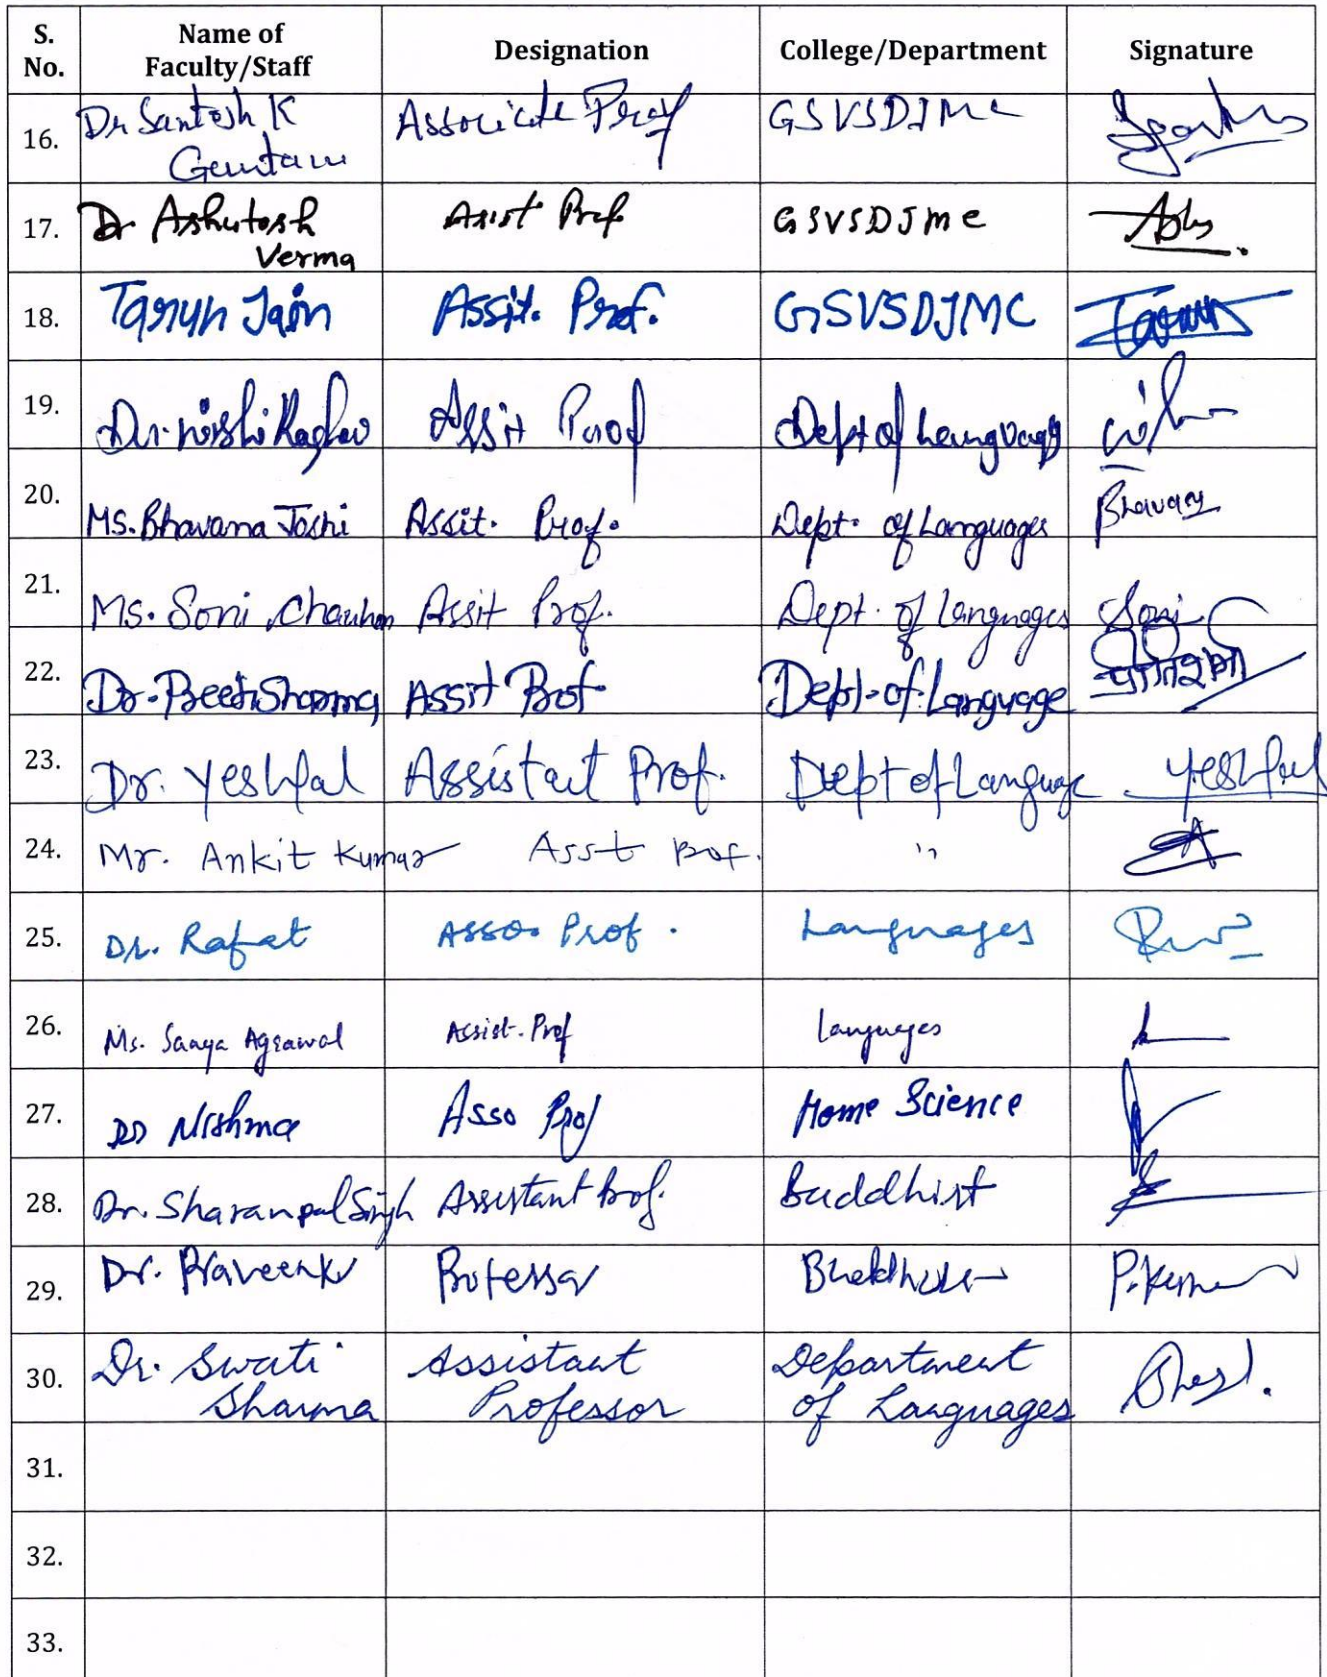 S. No. Name of Faculty/Staff Designation College/Department Signature
16. Dr Santosh K Gautam Associate Prof GSVSDJMC
17. Dr Ashutosh Verma Assist Prof GSVSDJMC Ashu
18. Tarun Jain Assit. Prof. GSVSDJMC Tarun
19. Dr. Raghav Assit Prof Dept of Languages
20. Ms. Bhavana Joshi Assit. Prof. Dept. of Languages Bhavana
21. Ms. Soni Chauhan Assit Prof. Dept. of languages Soni
22. Dr. Preeti Sharma Assit Prof Dept. of Language
23. Dr. Yeshpal Assistant Prof. Dept of Language Yeshpal
24. Mr. Ankit Kumar Asst Prof. "
25. Dr. Rafat Asso. Prof. Languages
26. Ms. Agrawal Assist. Prof Languages
27. Dr Asso Prof Home Science
28. Dr. Sharanpal Singh Assistant Prof. Buddhist
29. Dr. Praveen Kr Professor P. Kumar
30. Dr. Swati Sharma Assistant Professor Department of Languages
31.
32.
33.